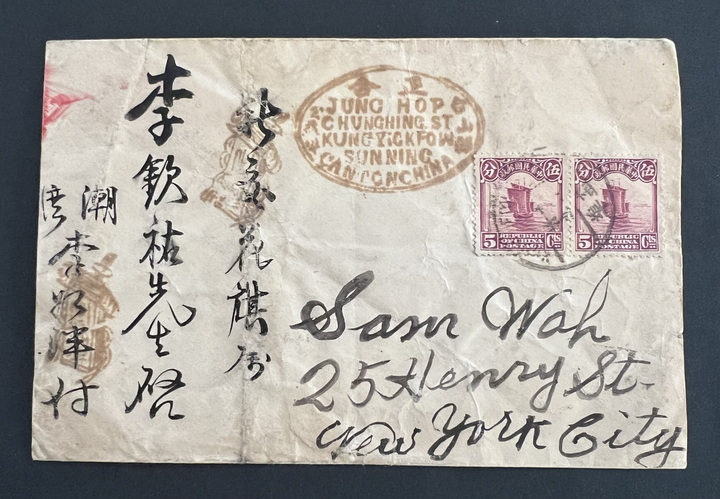 花旗
李欽祐先生啓
潮
李
付
JUNG HOP
CHUNGHING.ST
KUNGYICKFOW
SUNNING
CANTONCHINA
分 政郵國民華中 伍
5 REPUBLIC OF CHINA POSTAGE Cts
分 政郵國民華中 伍
5 REPUBLIC OF CHINA POSTAGE Cts
Sam Wah
25 Henry St.
New York City